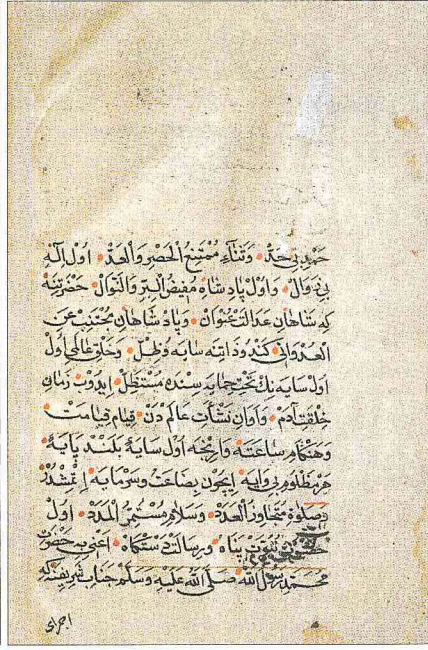 حَمْدِ بِى حَدّْ وَثَنَآءِ مُمْتَنِعُ الْحَصْرِ وَالْعَدّْ اُوْل اِلٰهِ
بِى زَوَالْ وَاوُلْ پَادِشَاهِ مُفِيضُ الْبِرِّ وَالنَّوَالْ حَضْرَتِنَه
كِه شَاهَانِ عَدَالَتْ عُنْوَانْ وَپَادِشَاهَانِ مُجْتَنِبْ عَنِ
الْعُدْوَانِى كَنْدُو ذَاتِنَه سَايَه وَظِلّْ وَخَلْقِ عَالَمِى اُولْ
اُولْ سَايَه نِكْ تَحْتِ حِمَايَه سِنْدَه مُسْتَظِلّْ اِيدُوبْ زَمَانِ
خِلْقَتِ آدَمْ وَاَوَانِ نَشْأَتِ عَالَمْ دَنْ قِيَامِ قِيَامَتْ
وَهَنْكَامِ سَاعَتَه وَارِنْجَه اُولْ سَايَهٔ بَلَنْد پَايَهٔ
هَرْ مَظْلُومِ بِى وَايَه اِيچُونْ بِضَاعَتْ وَسَرْمَايَه اِتْمِشْدُرْ
صَلٰوةِ مُتَجَاوِزُ الْعَدَدْ وَسَلَامِ مُسْتَمِرُّ الْمَدَدْ اُولْ
نُبُوَّتْ پَنَاه وَرِسَالَتْ دَسْتْكَاه اَعْنِى بِه حَضْرَتِ
مُحَمَّدٍ رَسُولُ اللّٰه صَلَّى اللّٰهُ عَلَيْهِ وَسَلَّمْ جَنَابِ شَرِيفِنَه كِه
اجراى